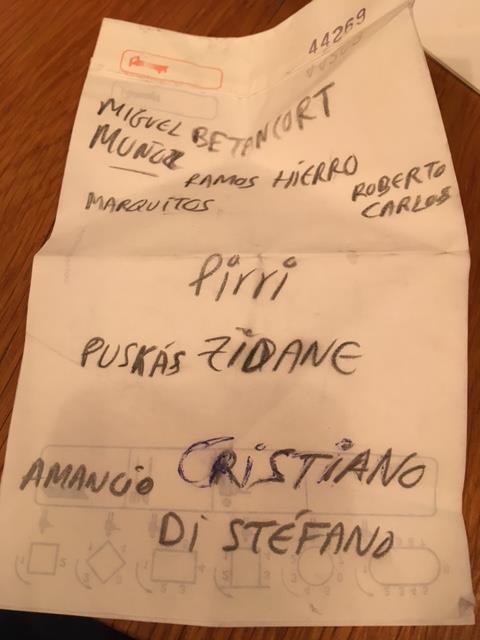 44269
MIGUEL BETANCORT
MUÑOZ
RAMOS HIERRO ROBERTO
MARQUITOS CARLOS
Pirri
PUSKÁS ZIDANE
AMANCIO CRISTIANO
DI STÉFANO